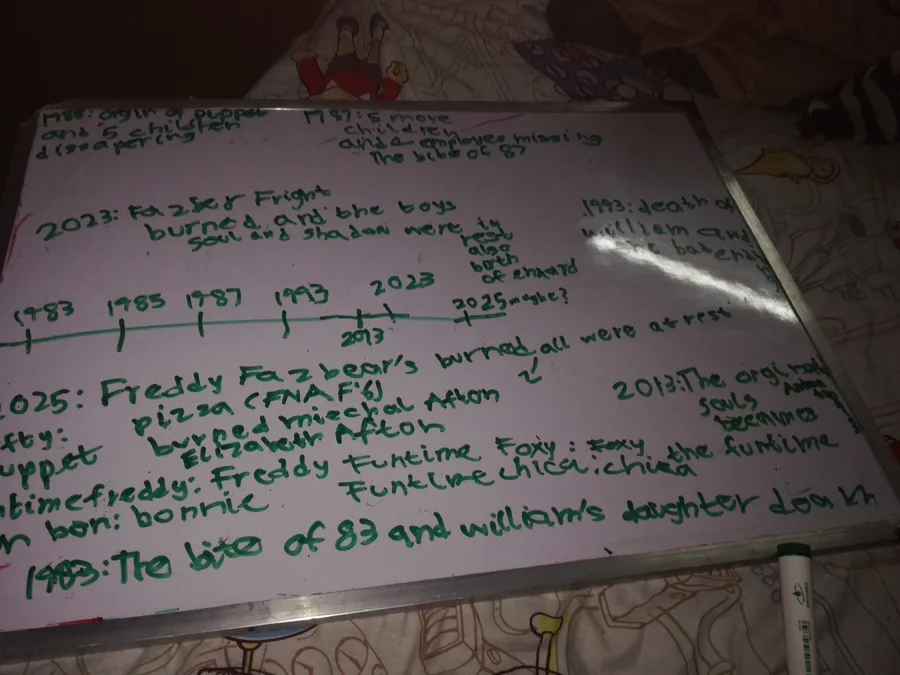 1985: origin of puppet
and 5 children
dissapering
1987: 5 more
children
and a employee missing
The bite of 87
2023: Fazber Fright
burned and the boys
soul and shadow were in
rest
also
birth
of ennard
1993: death of
william and
1983
1985
1987
1993
2013
2023
2025 maybe?
2025: Freddy Fazbear's burned, all were at rest
pizza (FNAF 6)
burned miechal Afton
Elizabeth Afton
2013: The orginal
souls
becomes
the funtime
fty:
uppet
ntimefreddy: Freddy Funtime Foxy: Foxy
n bon: bonnie Funtime chica: chica
1983: The bite of 83 and william's daughter death